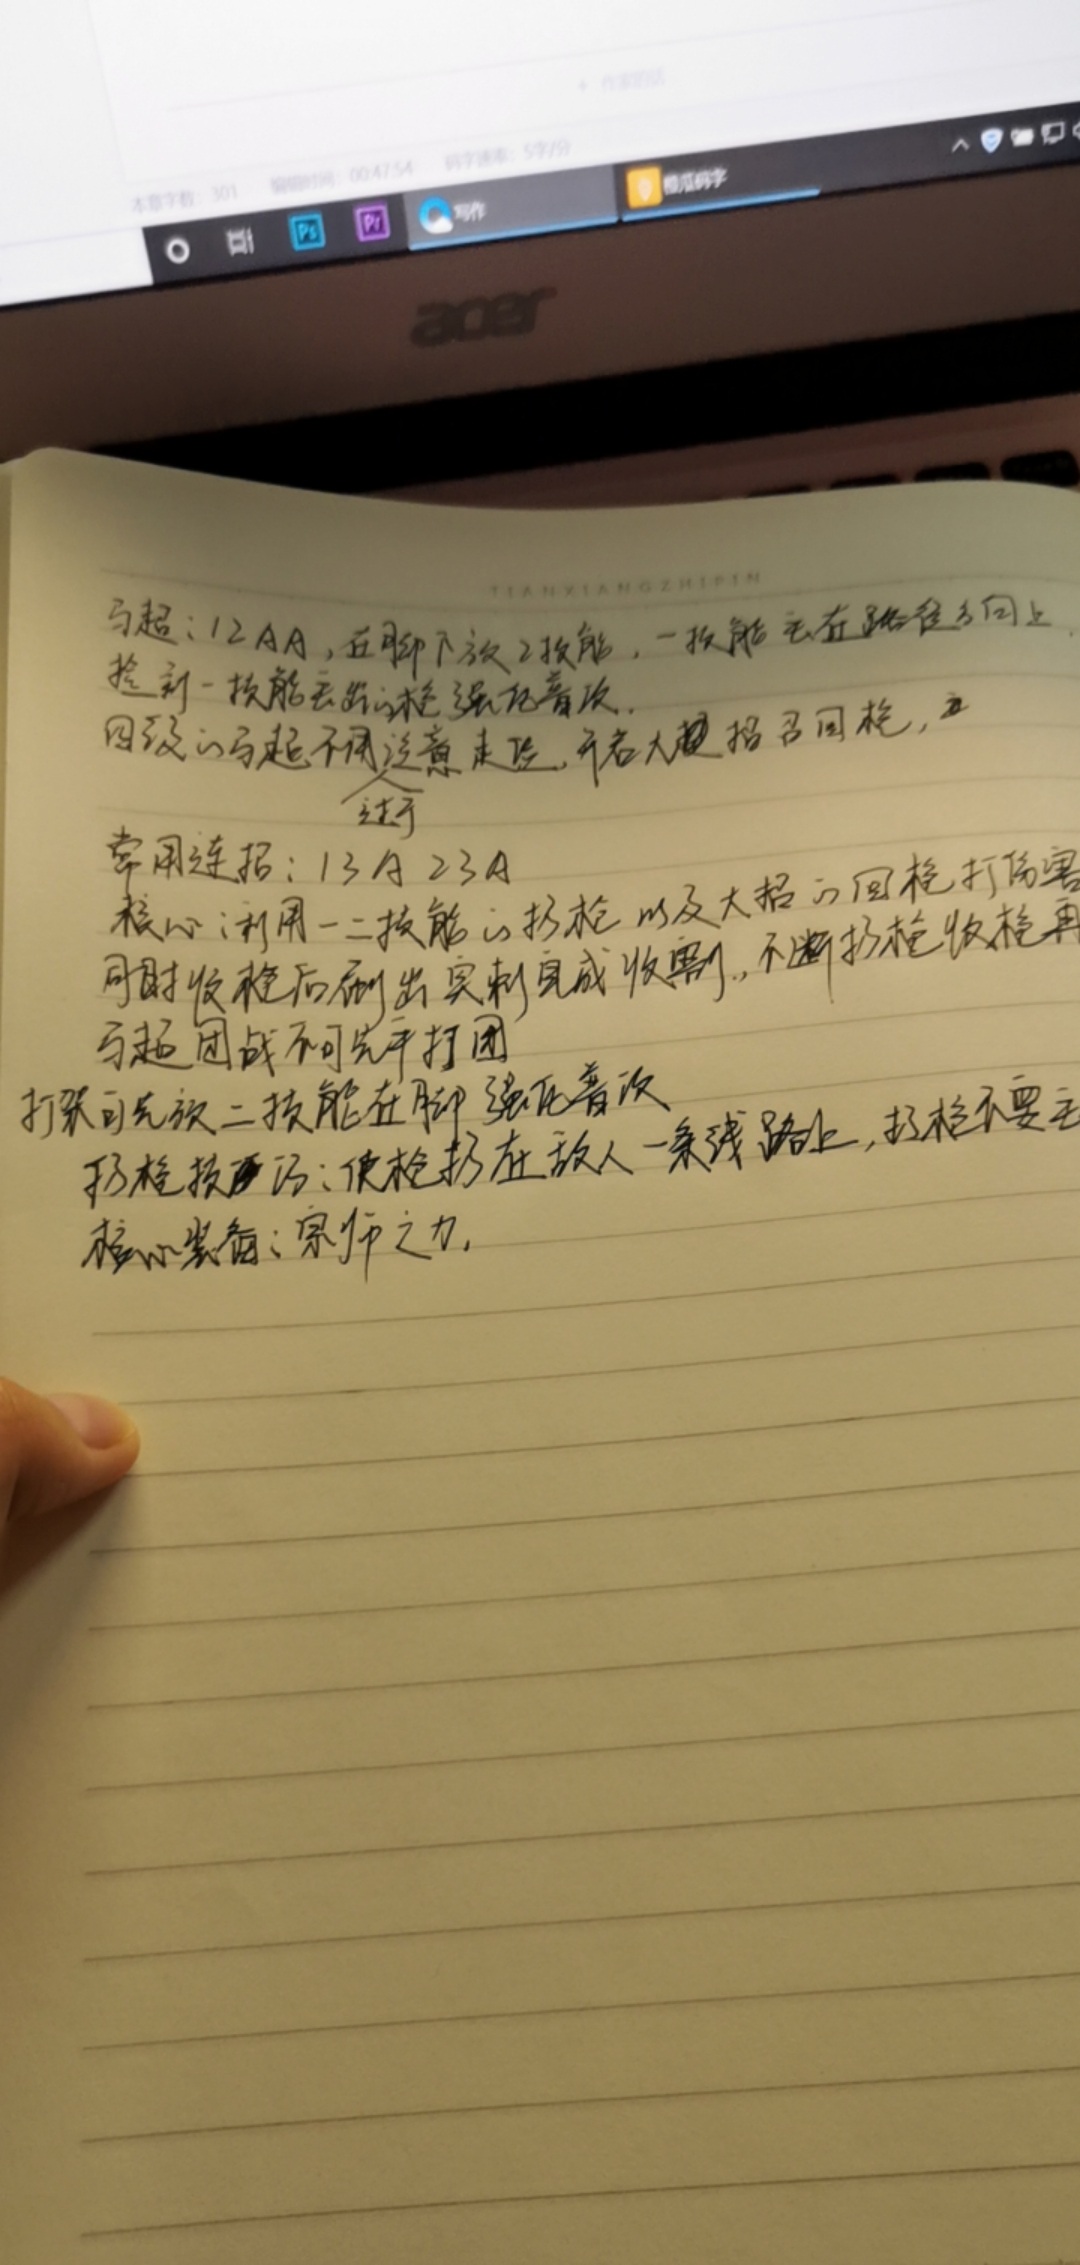 作家的话
本章字数：301 编辑时间：00:47:54 码字速率：5字/分
Ps Pr 写作 橙瓜码字
acer
TIANXIANGZHIPIN
马超：12AA，在脚下放2技能，一技能丢在路径方向上
捡到一技能丢出的枪强化普攻．
四级的马超不用过于注意走位，开启大招召回枪，
常用连招：13A23A
核心：利用一二技能的扔枪以及大招的回枪打伤害
同时收枪后刷出突刺完成收割．，不断扔枪收枪再
马超团战不可先手打团
打架可先放二技能在脚强化普攻
扔枪技巧：使枪扔在敌人一条线路上，扔枪不要丢
核心装备：宗师之力．